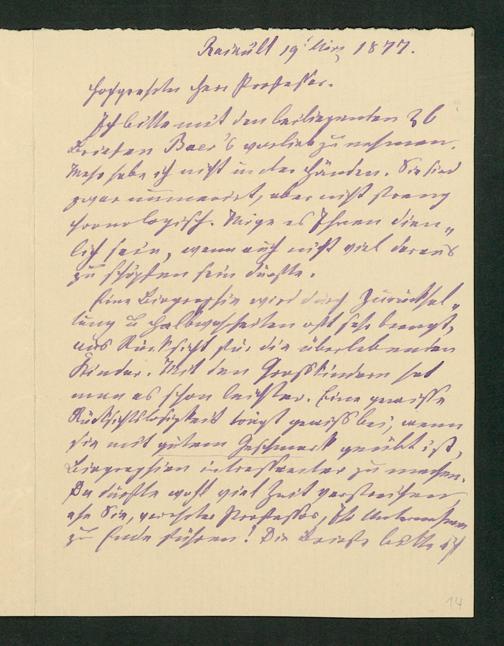 Raiküll 19 März 1877.
Hochgeehrter Herr Professor.
Ich bitte mit den beiliegenden 26
Briefen Baer's vorlieb zu nehmen.
Mehr habe ich nicht in den Händen. Sie sind
zwar nummerirt, aber nicht streng
chronologisch. Möge es Ihnen dien„
lich sein, wenn auch nicht viel daraus
zu schöpfen sein dürfte.
Eine Biographie wird durch Zurückhal„
tung u Halbwahrheiten oft sehr beengt,
aus Rücksicht für die überlebenden
Kinder. Mit den Grosskindern hat
man es schon leichter. Eine gewisse
Rücksichtslosigkeit trägt gewiss bei, wenn
sie mit gutem Geschmack geübt ist,
Biographien interessanter zu machen.
Da dürfte wohl viel Zeit verstreichen
ehe Sie, verehrter Professor, Ihr Unternehmen
zu Ende führen! Die Briefe bitte ich
14